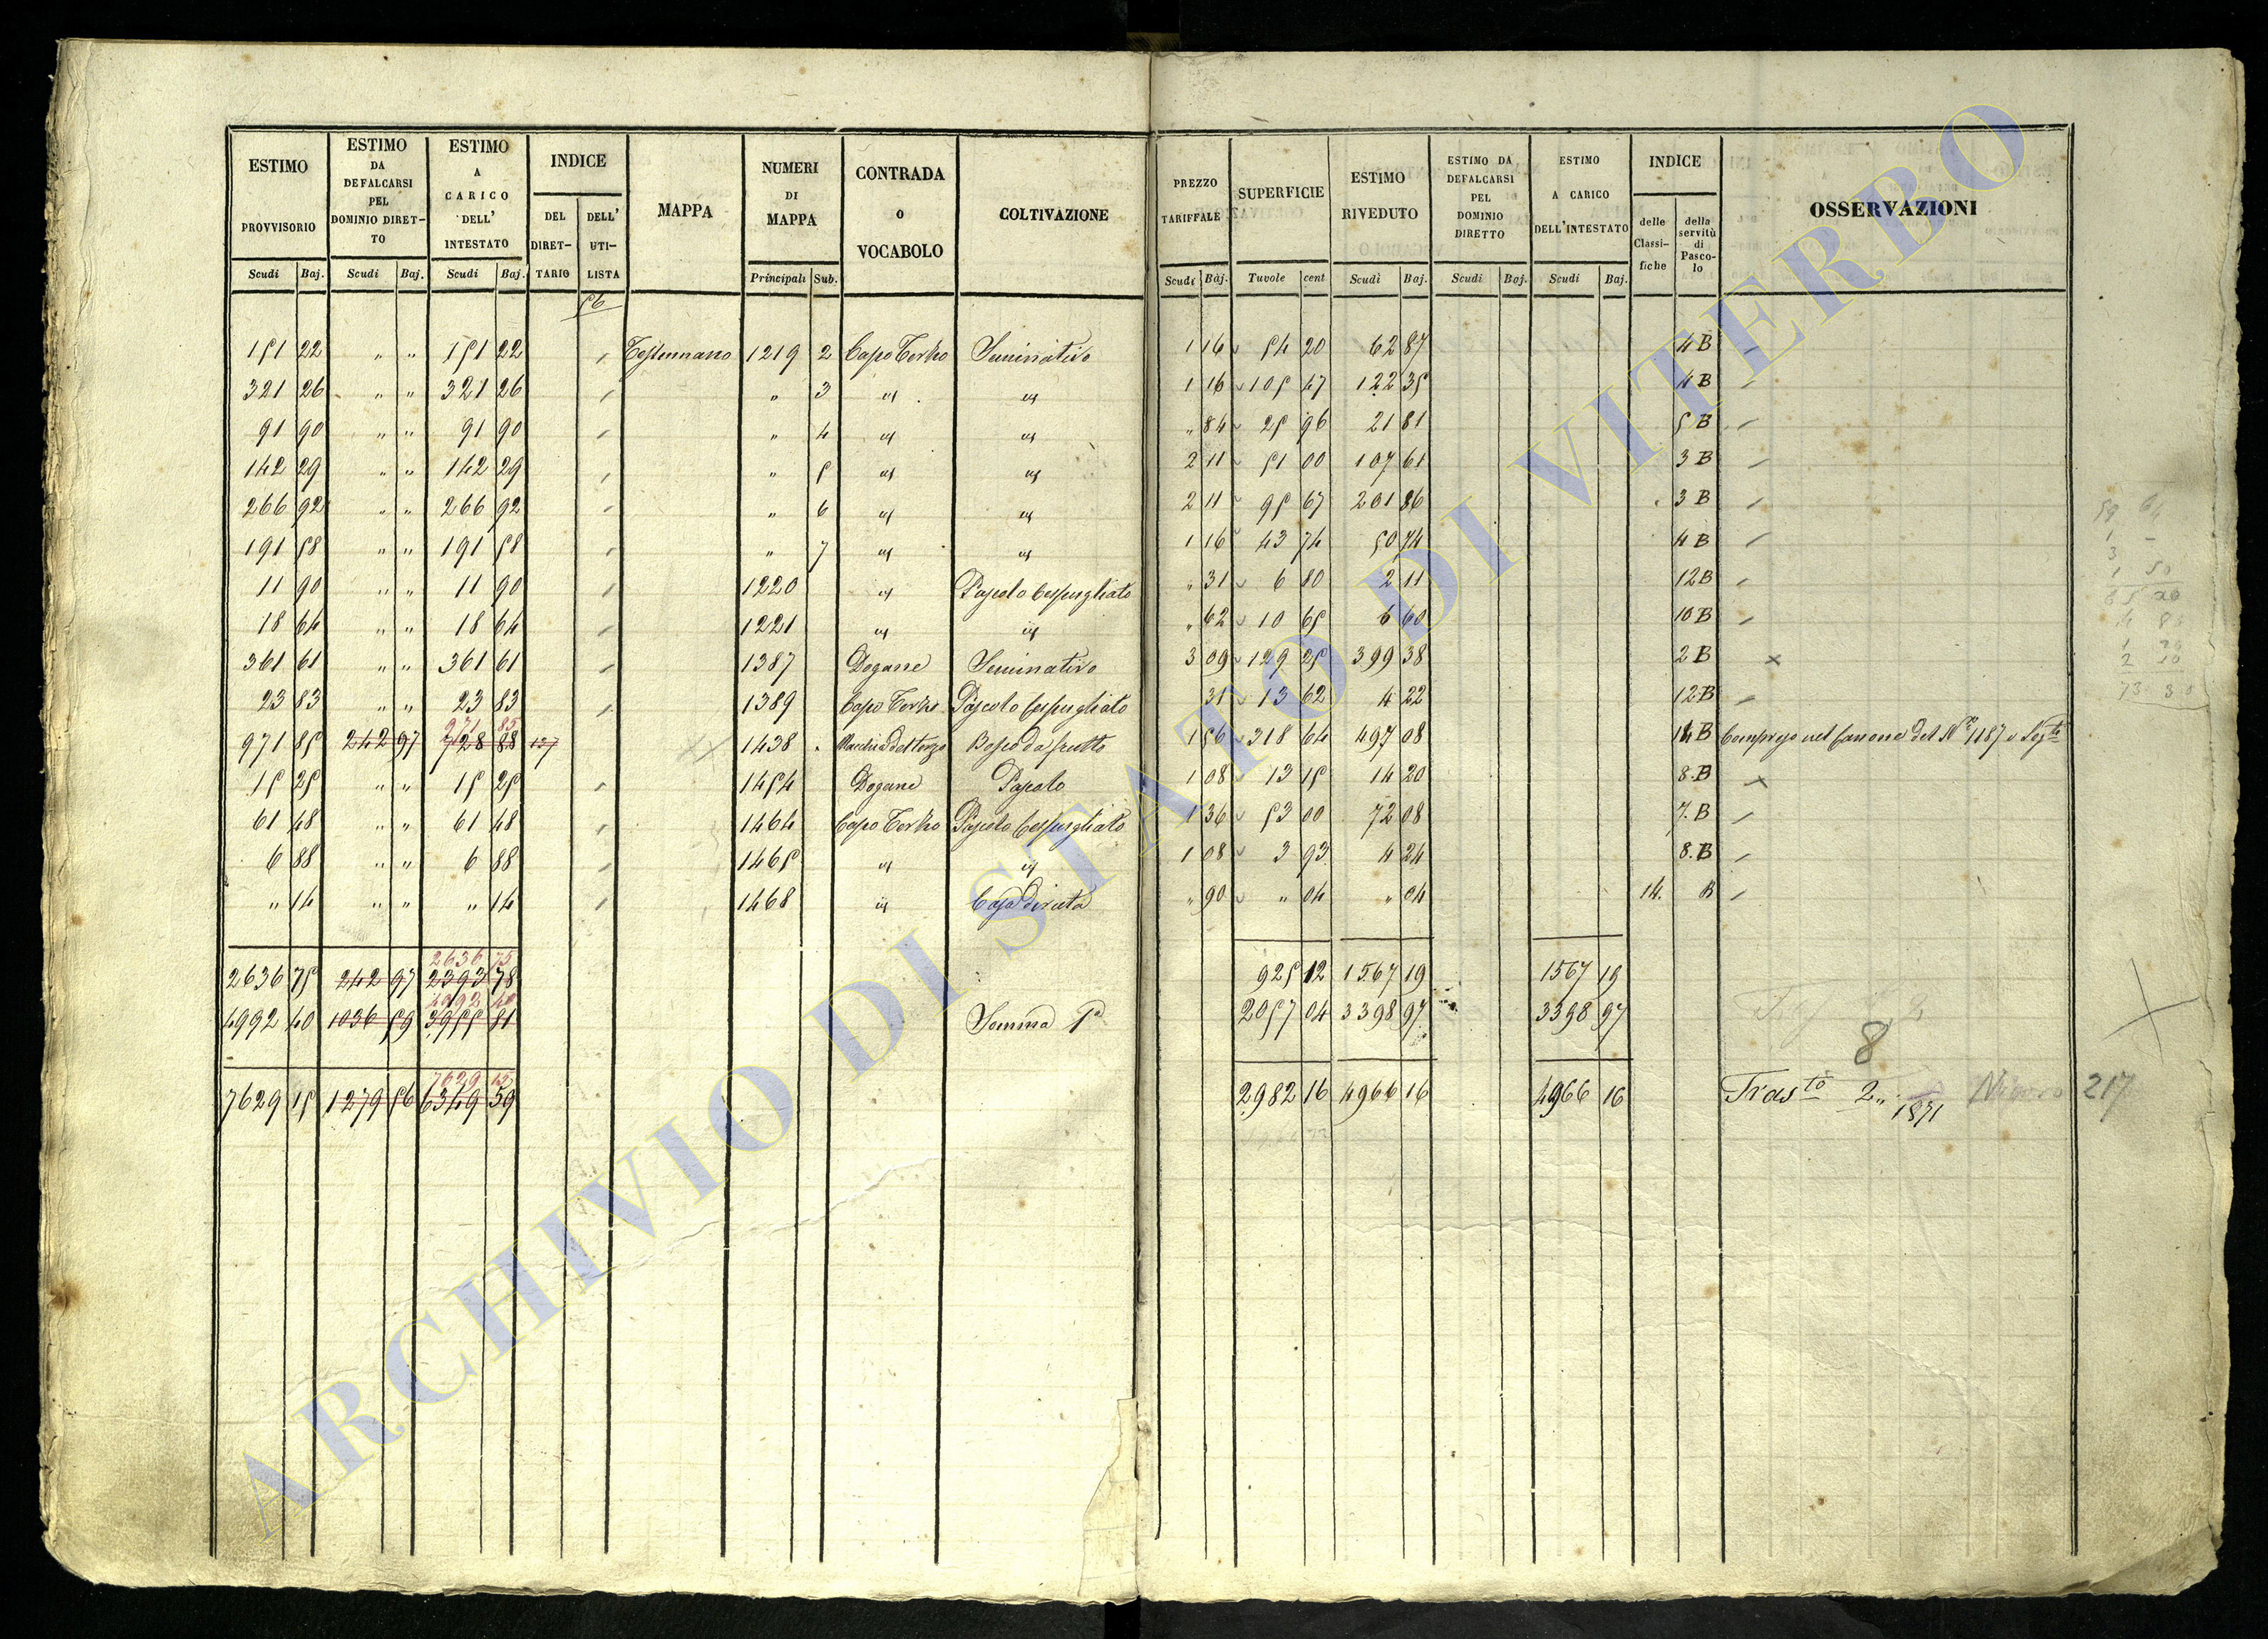 ESTIMO PROVVISORIO Scudi Baj.
ESTIMO DA DEFALCARSI PEL DOMINIO DIRETTO Scudi Baj.
ESTIMO A CARICO DELL' INTESTATO Scudi Baj.
INDICE DEL DIRETTARIO DELL' UTILISTA
MAPPA
NUMERI DI MAPPA Principali Sub.
CONTRADA O VOCABOLO
COLTIVAZIONE
PREZZO TARIFFALE Scudi Baj.
SUPERFICIE Tavole cent
ESTIMO RIVEDUTO Scudi Baj.
ESTIMO DA DEFALCARSI PEL DOMINIO DIRETTO Scudi Baj.
ESTIMO A CARICO DELL'INTESTATO Scudi Baj.
INDICE delle Classifiche della servitù di Pascolo
OSSERVAZIONI
56
151 22 " " 151 22 / 1219 2 Capo Terzo Seminativo 1 16 54 20 62 87 4 B /
321 26 " " 321 26 / " 3 id id 1 16 105 47 122 35 4 B /
91 90 " " 91 90 / " 4 id id " 84 25 96 21 81 5 B /
142 29 " " 142 29 / " 5 id id 2 11 51 00 107 61 3 B /
266 92 " " 266 92 / " 6 id id 2 11 95 67 201 86 3 B /
191 58 " " 191 58 / " 7 id id 1 16 43 74 50 74 4 B /
11 90 " " 11 90 / 1220 id Pascolo Cespugliato " 31 6 80 2 11 12 B /
18 64 " " 18 64 / 1221 id id " 62 10 65 6 60 10 B /
361 61 " " 361 61 / 1387 Dogane Seminativo 3 09 129 25 399 38 2 B x
23 83 " " 23 83 / 1389 Capo Terzo Pascolo Cespugliato 31 13 62 4 22 12 B /
971 85
971 85 242 97 728 88 137 1438 Macchia del terzo Bosco da frutto 1 56 318 64 497 08 14 B Compreso nel Canone del N° 1187 e Segti
15 25 " " 15 25 / 1454 Dogane Pascolo 1 08 13 15 14 20 8. B x
61 48 " " 61 48 / 1464 Capo Terzo Pascolo Cespugliato 1 36 53 00 72 08 7. B /
6 88 " " 6 88 / 1465 id id 1 08 3 93 4 24 8. B /
" 14 " " " 14 / 1468 id Casa diruta " 90 " 04 " 04 14. B /
2636 75
2636 75 242 97 2393 78 925 12 1567 19 1567 19
4992 40
4992 40 1036 59 3955 81 Somma Pa 2057 04 3398 97 3398 97
8
7629 15
7629 15 1279 56 6349 59 2982 16 4966 16 4966 16 Trasto 2 1871 217
ARCHIVIO DI STATO DI VITERBO